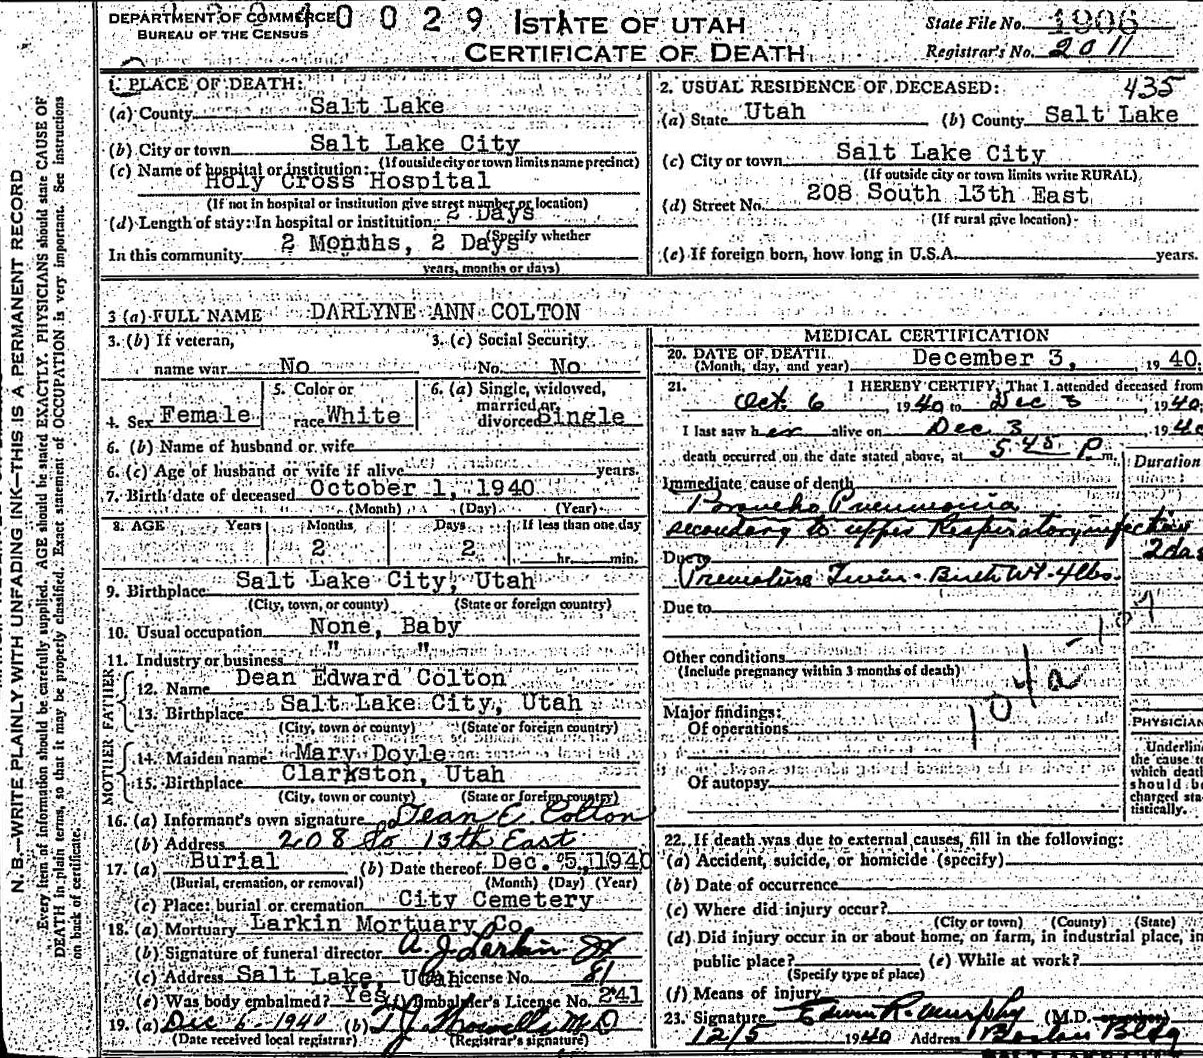 DEPARTMENT OF COMMERCE
BUREAU OF THE CENSUS
40029
STATE OF UTAH
CERTIFICATE OF DEATH
State File No. 1906
Registrar's No. 2011
N. B.—WRITE PLAINLY WITH UNFADING INK—THIS IS A PERMANENT RECORD
Every item of information should be carefully supplied. AGE should be stated EXACTLY. PHYSICIANS should state CAUSE OF
DEATH in plain terms, so that it may be properly classified. Exact statement of OCCUPATION is very important. See instructions
on back of certificate.
1. PLACE OF DEATH:
(a) County Salt Lake
(b) City or town Salt Lake City
(If outside city or town limits name precinct)
(c) Name of hospital or institution:
Holy Cross Hospital
(If not in hospital or institution give street number or location)
(d) Length of stay: In hospital or institution 2 Days
(Specify whether
In this community 2 Months, 2 Days
years, months or days)
2. USUAL RESIDENCE OF DECEASED: 435
(a) State Utah (b) County Salt Lake
(c) City or town Salt Lake City
(If outside city or town limits write RURAL)
(d) Street No. 208 South 13th East
(If rural give location)
(e) If foreign born, how long in U.S.A. years.
3 (a) FULL NAME DARLYNE ANN COLTON
3. (b) If veteran,
name war No
3. (c) Social Security
No. No
4. Sex Female
5. Color or
race White
6. (a) Single, widowed,
married or
divorced Single
6. (b) Name of husband or wife
6. (c) Age of husband or wife if alive years.
7. Birth date of deceased October 1, 1940
(Month) (Day) (Year)
8. AGE Years Months Days If less than one day
2 2 hr. min.
9. Birthplace Salt Lake City, Utah
(City, town, or county) (State or foreign country)
10. Usual occupation None, Baby
11. Industry or business " "
FATHER
12. Name Dean Edward Colton
13. Birthplace Salt Lake City, Utah
(City, town or county) (State or foreign country)
MOTHER
14. Maiden name Mary Doyle
15. Birthplace Clarkston, Utah
(City, town or county) (State or foreign country)
16. (a) Informant's own signature Dean E Colton
(b) Address 208 So 13th East
17. (a) Burial (b) Date thereof Dec. 5, 1940
(Burial, cremation, or removal) (Month) (Day) (Year)
(c) Place: burial or cremation City Cemetery
18. (a) Mortuary Larkin Mortuary Co
(b) Signature of funeral director A. J. Larkin Jr
(c) Address Salt Lake, Utah License No. 81
(e) Was body embalmed? Yes (f) Embalmer's License No. 241
19. (a) Dec 6 - 1940 (b) T J Howells M.D
(Date received local registrar) (Registrar's signature)
MEDICAL CERTIFICATION
20. DATE OF DEATH December 3, 1940
(Month, day, and year)
21. I HEREBY CERTIFY, That I attended deceased from
Oct. 6, 1940 to Dec 3, 1940
I last saw her alive on Dec. 3, 1940
death occurred on the date stated above, at 5:45 P m.
Duration
Immediate cause of death
Broncho Pneumonia
secondary to upper Respiratory infection
2da.
Due to
Premature Twin - Birth Wt - 4lbs.
Due to
Other conditions
(Include pregnancy within 3 months of death)
107
Major findings:
Of operations
104a
Of autopsy
PHYSICIAN
Underline
the cause to
which death
should be
charged sta-
tistically.
22. If death was due to external causes, fill in the following:
(a) Accident, suicide, or homicide (specify)
(b) Date of occurrence
(c) Where did injury occur?
(City or town) (County) (State)
(d) Did injury occur in or about home, on farm, in industrial place, in
public place? (e) While at work?
(Specify type of place)
(f) Means of injury
23. Signature Edwin R. Murphy (M.D.
12/5 1940 Address Boston Bldg